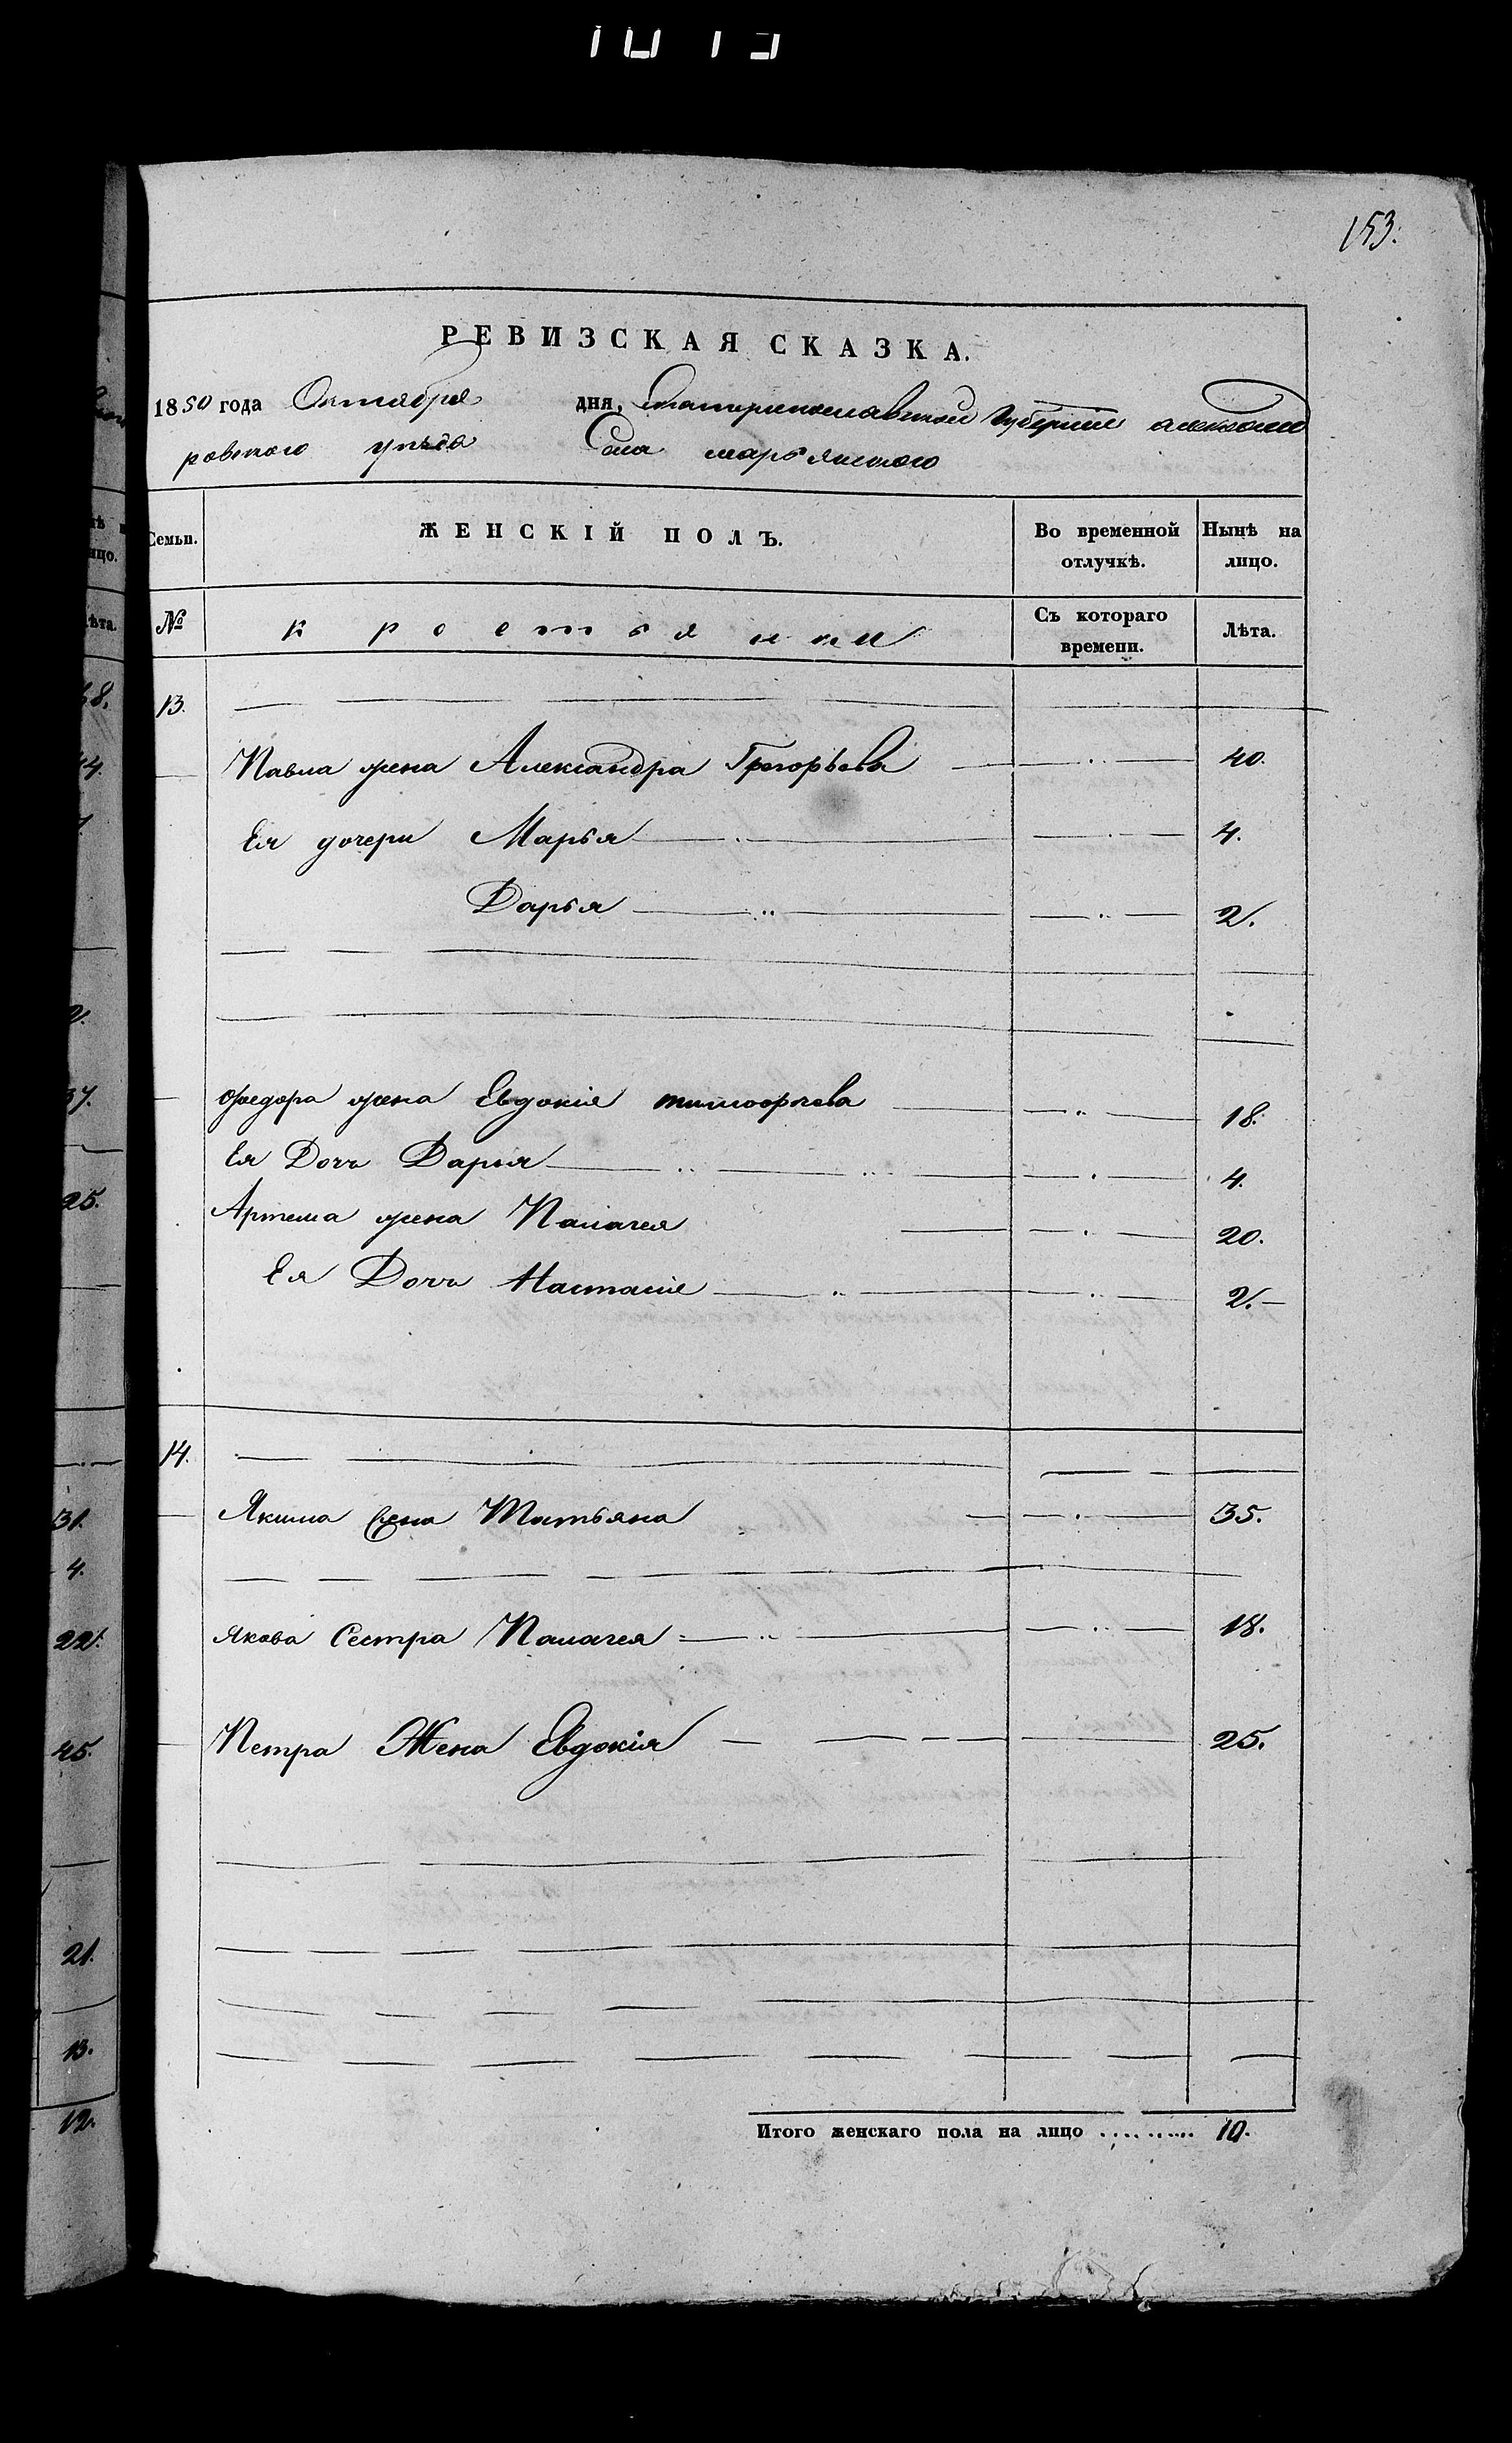 153.
РЕВИЗСКАЯ СКАЗКА.
1850 года Октября дня, Екатеринославской Губернии александ
ровского уезда Села марьянского
Семьи. ЖЕНСКІЙ ПОЛЪ. Во временной отлучкѣ. Нынѣ на лицо.
№ крестьянки Съ котораго времени. Лѣта.
13.
Павла жена Александра Григорьева 40.
Ея дочери Марья 4.
Дарья 2.
Фѣедора жена Евдокія тимофѣева 18.
Ея Дочь Дарья 4.
Артема жена Палагея 20.
Ея Дочь Настасія 2.
14.
Якима жена Татьяна 35.
Якова Сестра Палагея 18.
Петра Жена Евдокія 25.
Итого женскаго пола на лицо .......... 10.